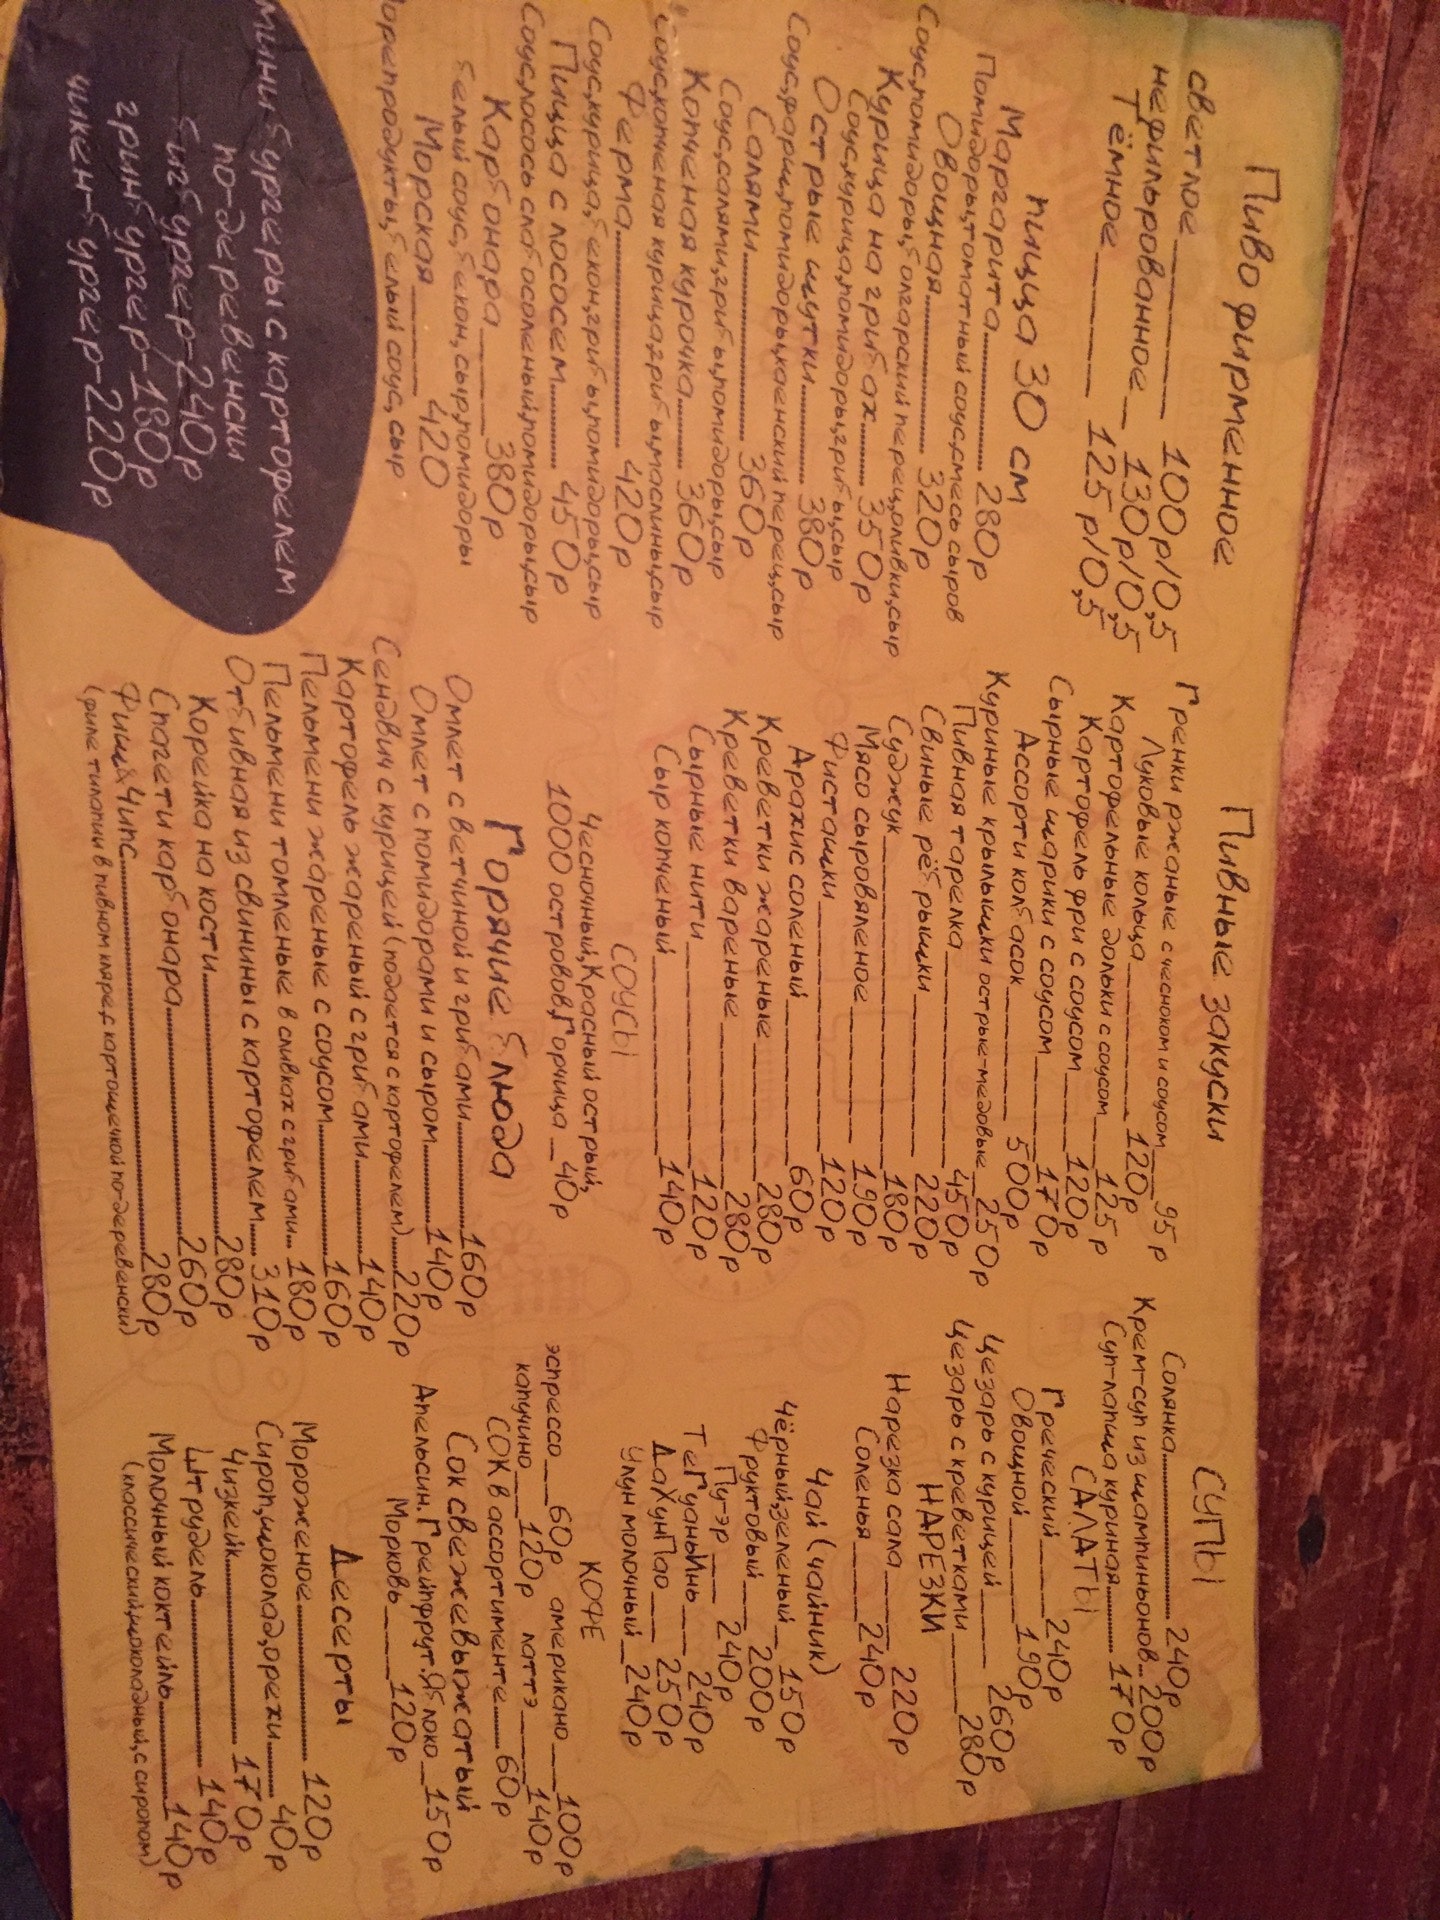 Пиво фирменное
светлое 100р/0,5
нефильрованное 130р/0,5
Тёмное 125р/0,5
пицца 30 см
Маргарита 280р
Помидоры,томатный соус,смесь сыров
Овощная 320р
Соус,помидоры,болгарский перец,оливки,сыр
Курица на грибах 350р
Соус,курица,помидоры,грибы,сыр
Острые шутки 380р
Соус,фарш,помидоры,каенский перец,сыр
Салями 360р
Соус,салями,грибы,помидоры,сыр
Копченая курочка 360р
Соус,копченая курица,грибы,маслины,сыр
Ферма 420р
Соус,курица,бекон,грибы,помидоры,сыр
Пицца с лососем 450р
Соус,лосось слабосоленый,помидоры,сыр
Карбонара 380р
белый соус,бекон,сыр,помидоры
Морская 420
Морепродукты,белый соус,сыр
мини бургеры с картофелем
по-деревенски
бигбургер-240р
гринбургер-180р
чикен-бургер-220р
Пивные закуски
Гренки ржаные с чесноком и соусом 95р
Луковые кольца 120р
Картофельные дольки с соусом 125р
Картофель фри с соусом 120р
Сырные шарики с соусом 170р
Ассорти колбасок 500р
Куриные крылышки острые-медовые 250р
Пивная тарелка 450р
Свиные рёбрышки 220р
Суджук 180р
Мясо сыровяленое 190р
Фисташки 120р
Арахис соленый 60р
Креветки жареные 280р
Креветки вареные 280р
Сырные нити 120р
Сыр копченый 140р
СОУСЫ
Чесночный,Красный острый,
1000 островов,Горчица 40р
Горячие блюда
Омлет с ветчиной и грибами 160р
Омлет с помидорами и сыром 140р
Сендвич с курицей (подается с картофелем) 220р
Картофель жареный с грибами 140р
Пельмени жареные с соусом 160р
Пельмени томленые в сливках с грибами 180р
Отбивная из свинины с картофелем 310р
Корейка на кости 280р
Спагети карбонара 260р
Фиш&Чипс 280р
(филе тилапии в пивном кляре,с картошечкой по-деревенски)
СУПЫ
Солянка 240р
Крем-суп из шампиньонов 200р
Суп-лапша куриная 170р
САЛАТЫ
Греческий 240р
Овощной 190р
Цезарь с курицей 260р
Цезарь с креветками 280р
НАРЕЗКИ
Нарезка сала 220р
Соленья 240р
Чай (чайник)
Чёрный,зеленый 150р
Фруктовый 200р
Пу-эр 240р
ТеГуаньИнь 240р
ДаХунПао 250р
Улун молочный 240р
КОФЕ
эспрессо 60р американо 100р
капучино 120р латтэ 140р
СОК в ассортименте 60р
Сок свежевыжатый
Апельсин.Грейпфрут,Яблоко 150р
Морковь 120р
Десерты
Мороженое 120р
Сироп,шоколад,орехи 40р
Чизкейк 170р
Штрудель 140р
Молочный коктейль 140р
(классический,шоколадный,с сиропом)